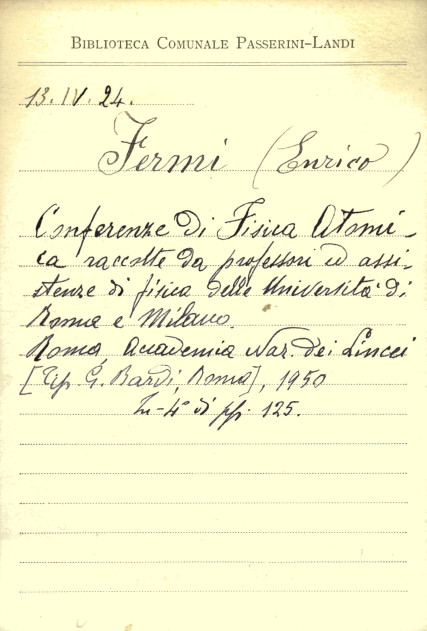 BIBLIOTECA COMUNALE PASSERINI-LANDI
13.IV.24.
Fermi (Enrico)
Conferenze di Fisica Atomi-
ca raccolte da professori ed assi-
stenze di fisica delle Università di
Roma e Milano.
Roma, Accademia Naz. dei Lincei
[Tip. G. Bardi, Roma], 1950
In-4° di pp. 125.